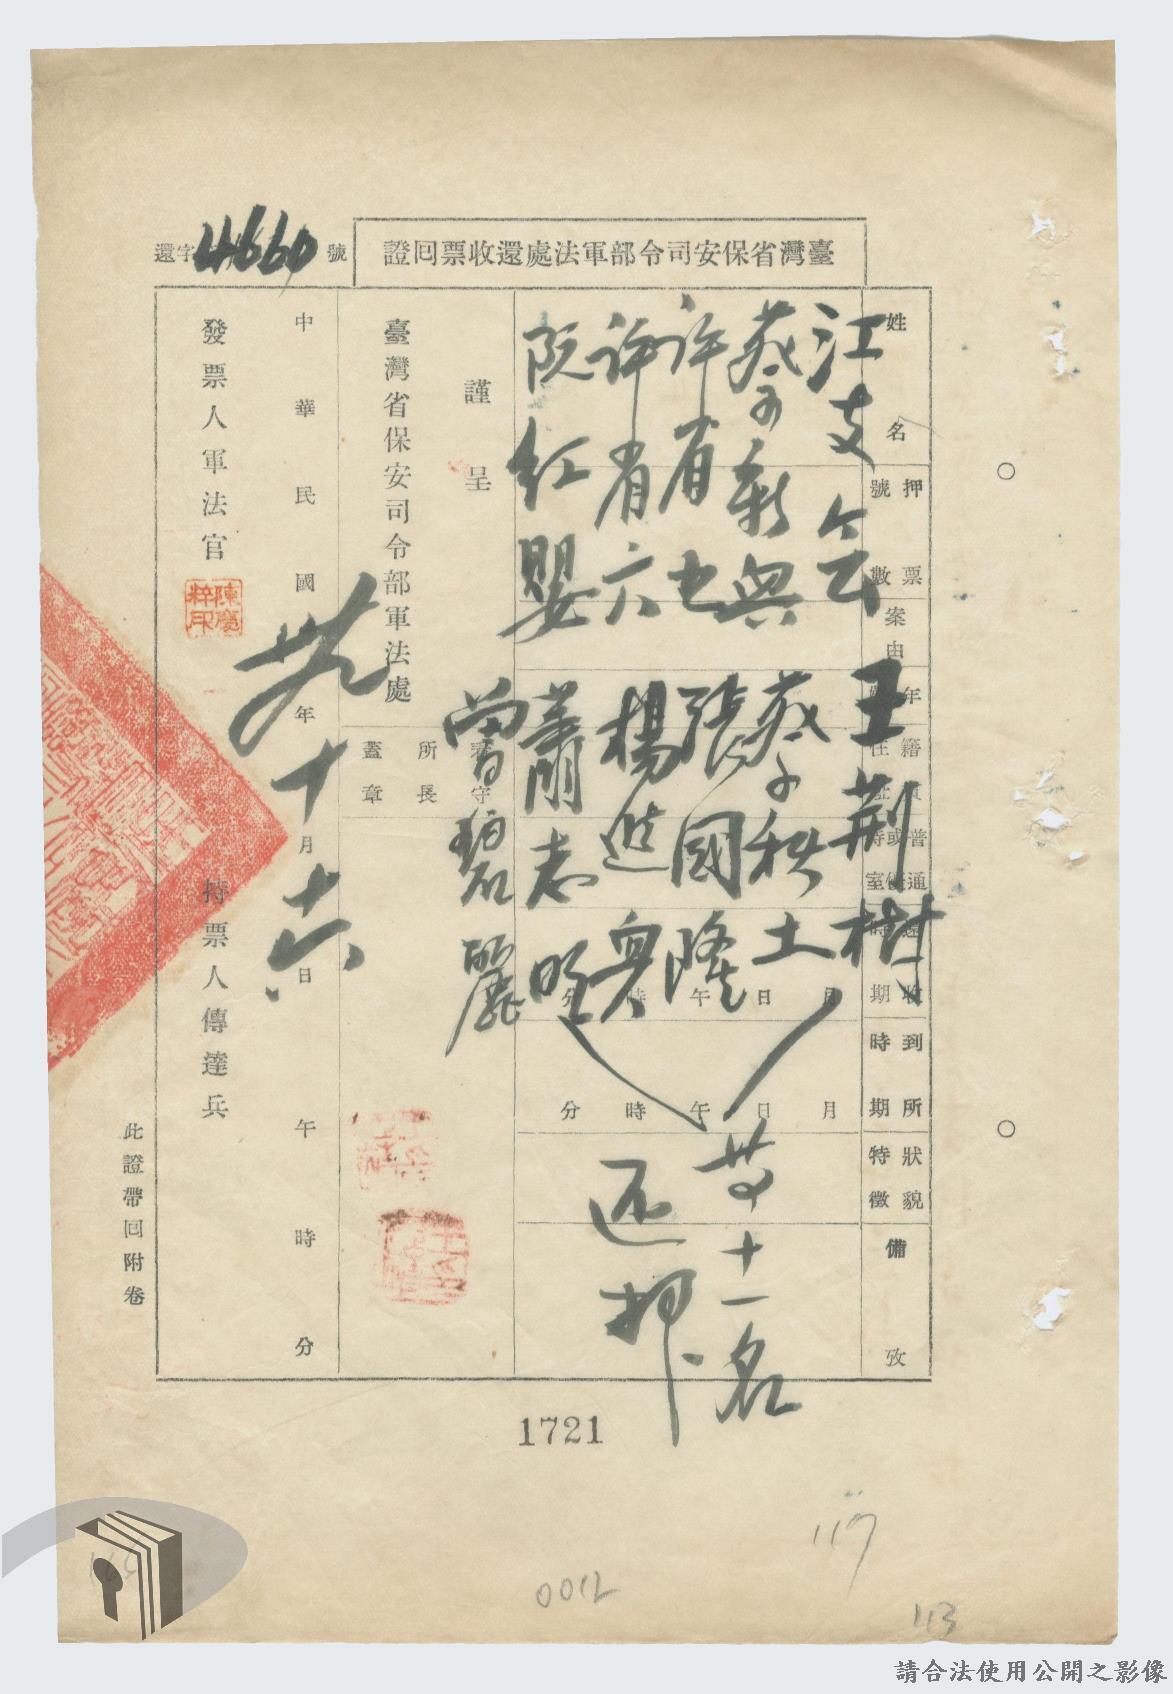 臺灣省保安司令部軍法處還收票回證
還字 4660 號
姓名
押票號數
案由
年
籍貫住址
普通或特優室
還收時期 月 日 午 時 分
到所時期 月 日 午 時 分
狀貌特徵
備攷
江支会 王荊樹
蔡新興 蔡秋土
许省七 張國隆
许省六 楊進興
阮紅嬰 蕭志明
曾碧麗
共十一名
还押
謹呈
臺灣省保安司令部軍法處
看守所長
蓋章
中華民國卅九年十月十六日 午 時 分
發票人軍法官 持票人傳達兵
此證帶回附卷
1721
117
0012
113
請合法使用公開之影像